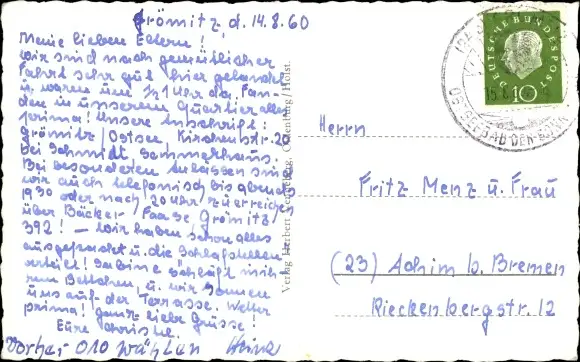 Grömitz, d. 14.8.60
Meine lieben Eltern!
Wir sind nach gemütlicher
Fahrt sehr gut hier gelandet
u. waren um Uhr da. Fan-
den in unserem Quartier alles
prima! Unsere Anschrift:
Grömitz/Ostsee, Kirchenstr. 20
bei Schmidt, Sommerhaus.
Bei besonderen Anlässen sind
wir auch telefonisch bis abends
19³⁰ oder nach 20 Uhr zu erreichen
über Bäcker Faase Grömitz/
392! – Wir haben schon alles
ausgepackt u. die Schlafstellen
verteilt! Sabine schläft in ih-
rem Bettchen, u. wir sonnen
uns auf der Terrasse. Wetter
prima! Ganz liebe Grüsse!
Eure Christel
Vorher 010 wählen Heinz
Verlag Herbert Oldenburg/Holst.
DEUTSCHE BUNDESPOST
10
OSTSEEBAD
Herrn
Fritz Menz u. Frau
(23) Achim b. Bremen
Rieckenbergstr. 12